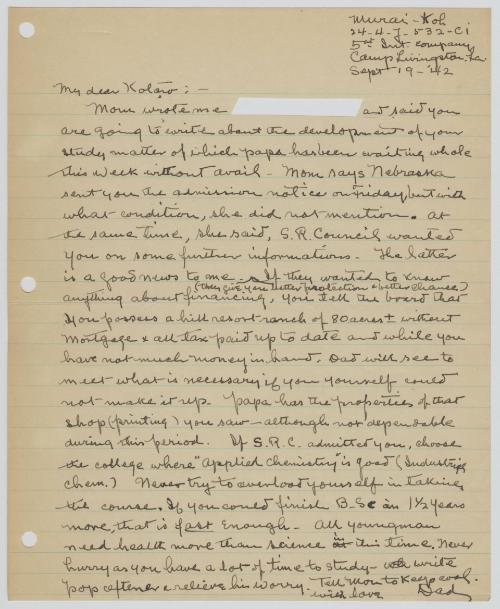 Murai - Koh
24-4-J-532-CI
5th Int. Company
Camp Livingston, La
Sept 19 - '42
My dear Kotaro : -
Mom wrote me and said you
are going to write about the development of your
study matter of which papa has been waiting whole
this week without avail - Mom says Nebraska
sent you the admission notice on Friday, but with
what condition, she did not mention. At
the same time, she said, S.R. Council wanted
you on some further informations. The latter
is a good news to me - If they wanted to know
(they give you better protection & better chances)
anything about financing, you tell the board that
you possess a hill resort ranch of 80 acres ± without
mortgage & all tax paid up to date and while you
have not much money in hand, Dad will see to
meet what is necessary if you yourself could
not make it up. Papa has the properties of that
shop (printing) you saw - although not dependable
during this period. If S.R.C. admitted you, choose
the college where "applied chemistry" is good (Industrial
chem.) Never try to overload yourself in taking
the course. If you could finish B.Sc in 1½ years
more, that is fast enough - All young man
need health more than science in this time. Never
hurry as you have a lot of time to study - write
pop oftener & relieve his worry - Tell Mom to keep cool.
with love Dad